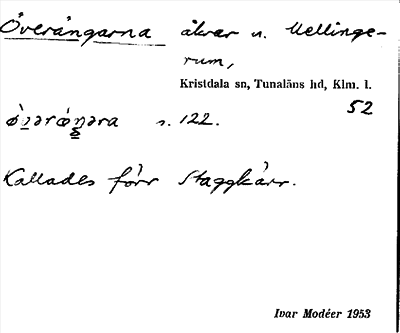 Överängarna åkrar n. Mellinge-
rum,
Kristdala sn, Tunaläns hd, Klm. l.
52
s. 122.
Kallades förr Staggkärr.
Ivar Modéer 1953